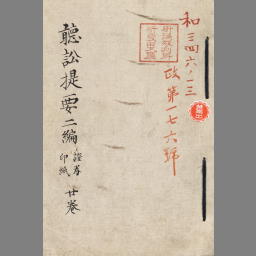 和三四六ノ一三
政第一七六號
聽訟提要二編
證券
印紙
廿巻